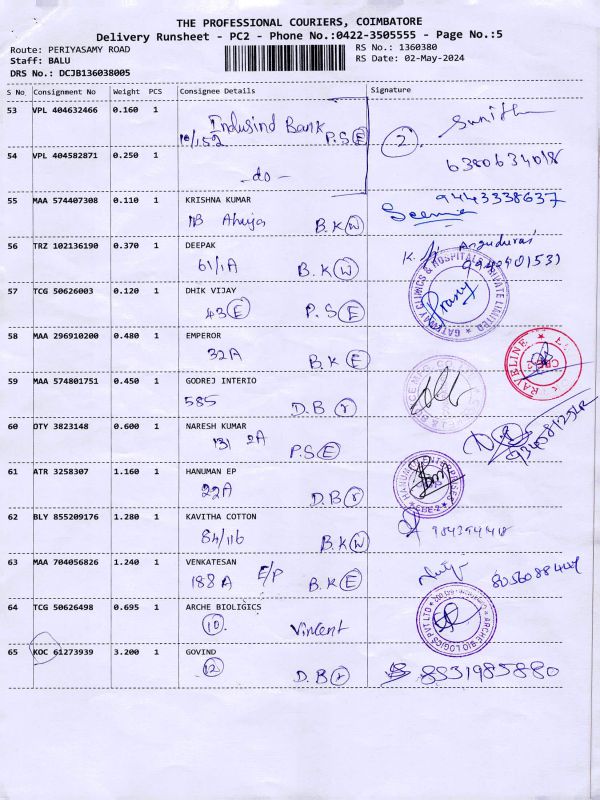 THE PROFESSIONAL COURIERS, COIMBATORE
Delivery Runsheet - PC2 - Phone No.:0422-3505555 - Page No.:5
Route: PERIYASAMY ROAD
RS No.: 1360380
Staff: BALU
RS Date: 02-May-2024
DRS No.: DCJB136038005
S No Consignment No Weight PCS Consignee Details Signature
53 VPL 404632466 0.160 1 Indusind Bank
10/152 P.S E 2 Sunitha
54 VPL 404582871 0.250 1 6380634018
- do -
55 MAA 574407308 0.110 1 KRISHNA KUMAR 9443338637
NB Ahuja B.K W Seema
56 TRZ 102136190 0.370 1 DEEPAK
61/1A B.K W
57 TCG 50626003 0.120 1 DHIK VIJAY
43 E P.S E
GATEWAY CLINICS & HOSPITALS PRIVATE LIMITED
58 MAA 296910200 0.480 1 EMPEROR
32A B.K E
59 MAA 574801751 0.450 1 GODREJ INTERIO
585 D.B r
60 OTY 3823148 0.600 1 NARESH KUMAR
131 2A P.S E
61 ATR 3258307 1.160 1 HANUMAN EP
22A D.B r
HANUMAN ENTERPRISES
CBE-2
62 BLY 855209176 1.280 1 KAVITHA COTTON
84/116 B.K W
63 MAA 704056826 1.240 1 VENKATESAN
188 A E/P B.K E
64 TCG 50626498 0.695 1 ARCHE BIOLIGICS
10 Vincent
ARCHE BIOLOGICS PVT LTD
65 KOC 61273939 3.200 1 GOVIND
12 D.B r 8531985880